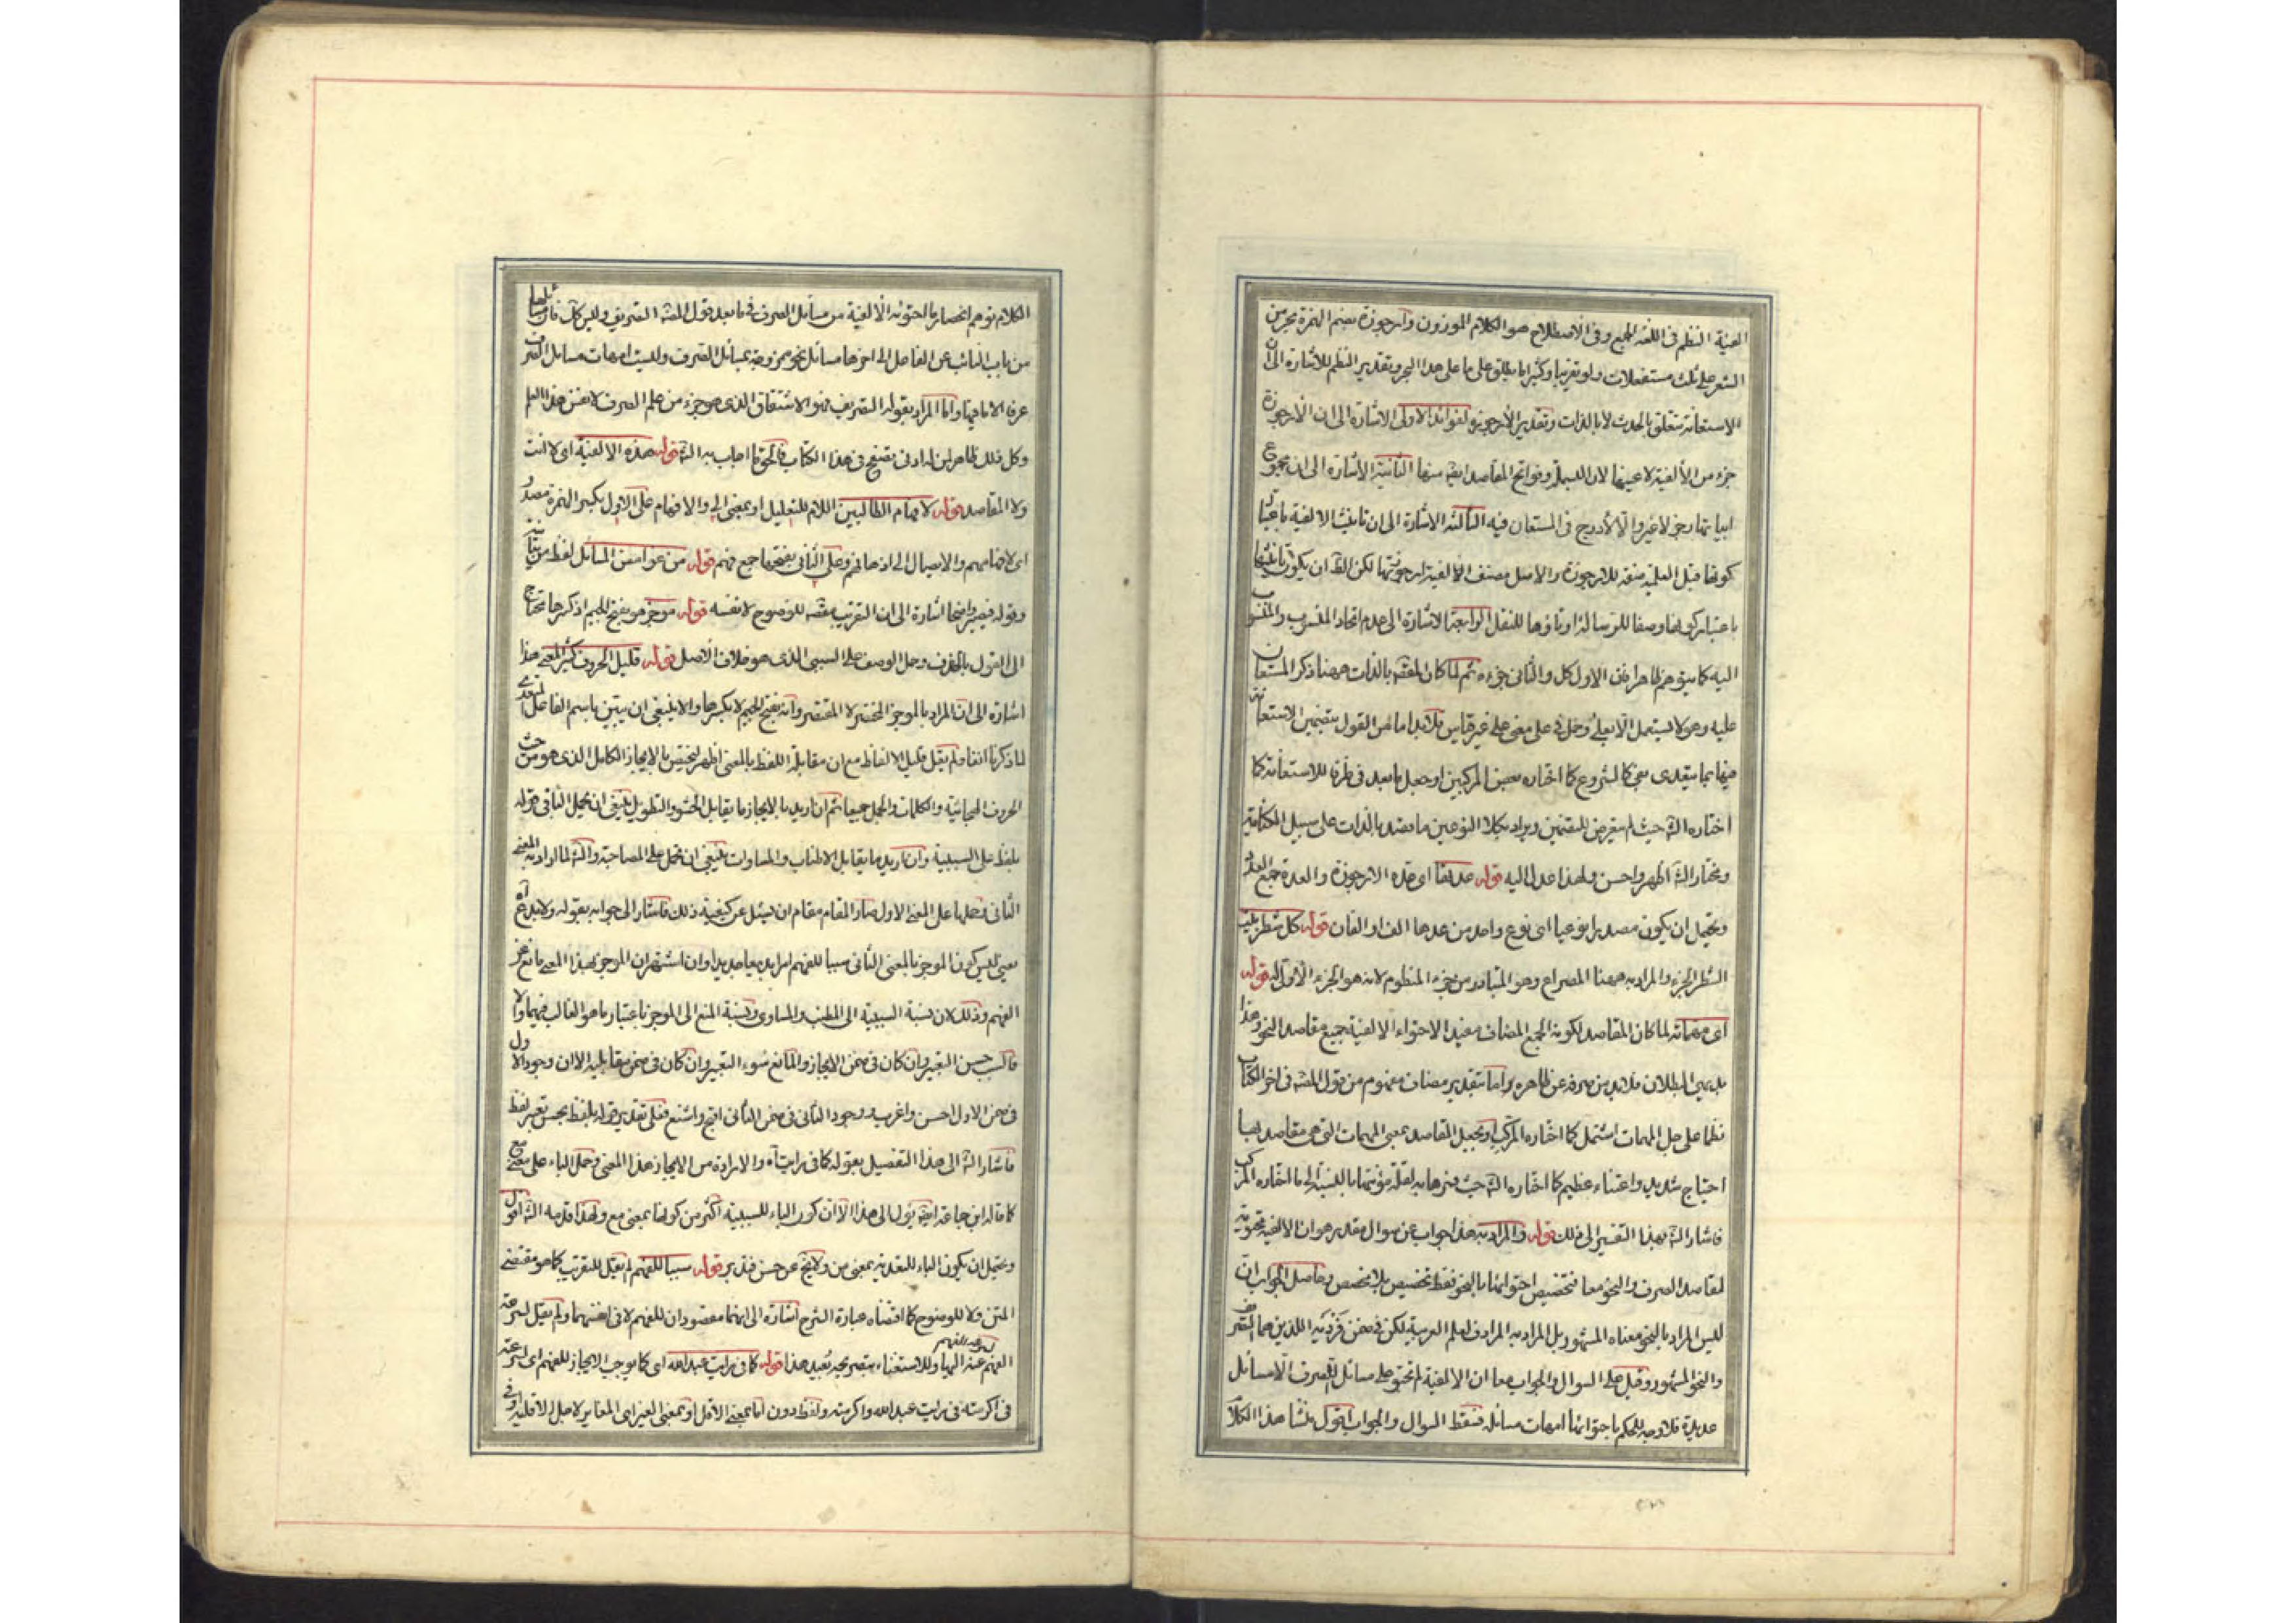 الفية النظم فى اللغة الجمع وفى الاصطلاح هو الكلام الموزون وارجوزة بضم الهمزة بحر من
الشعر على ثلث مستفعلات ولو تقريبا وكثيرا ما يطلق على ما على هذا البحر وتقدير النظم للاشارة الى ان
الاستعانة متعلق بالحدث لا بالذات وتقدير الارجوزة لفوائد الاولى الاشارة الى ان الارجوزة
جزء من الألفية لا عينها لان البسملة وفواتح المقاصد ايضا منها الثانية الاشارة الى ان مجموع
ابياتها رجز لا غير والا لأدرج فى المستعان فيه الثالثة الاشارة الى ان تانيث الالفية باعتبار
كونها قبل العلمية صفة للارجوزة والاصل مصنف الألفية ارجوزتها لكن الظ ان يكون تانيثها
باعتبار كونها وصفا للرسالة او تاؤها للنقل الرابعة الاشارة الى عدم اتحاد المنسوب والمنسوب
اليه كما يتوهم ظاهرا فان الاول كل والثانى جزءه ثم لما كان المقصد بالذات ههنا ذكر المستعان
عليه وهو لا يستعمل الا بعلى وحمل فى على معنى على غير قياس فلابد اما من القول بتضمين الاستعانة
فيها بما يتعدى بفى كالشروع كما اختاره بعض المركبين او جعل ما بعد فى ظرفا للاستعانة كما
اختاره الش حيث لم يتعرض للتضمين ويراد بكلا النوعين ما قصد بالذات على سبيل الكناية
ومختار الش اظهر واحسن ولهذا عدل اليه قوله عدتها اى عدة الارجوزة والعدة جميع العدد
ويحتمل ان يكون مصدرا نوعيا اى نوع واحد من عدها الف او الفان قوله كل شطر بيت
الشطر الجزء والمراد به ههنا المصراع وهو المتبادر من جزء المنظوم لانه هو الجزء الاول له قوله
اى مهماته لما كان المقاصد لكونه الجمع المضاف مفيدا لاحتواء الالفية جميع مقاصد النحو وهذا
بديهى البطلان فلابد من صرفه عن ظاهره واما بتقدير مضاف مفهوم من قول المصنف فى اخر الكتاب
نظما على جل المهمات اشتمل كما اختاره المركب او بجعل المقاصد بمعنى المهمات التى هى مقاصد بها
احتياج شديد واعتناء عظيم كما اختاره الش حيث فسرها به لقلة مؤنتها بالنسبة الى ما اختاره المركب
فاشار الش بهذا التفسير الى ذلك قوله والمراد به هذا جواب عن سوال مقدر هو ان الالفية محتوية
لمقاصد الصرف والنحو معا فتخصيص احتوائها بالنحو فقط تخصيص بلا مخصص وحاصل الجواب ان
ليس المراد بالنحو معناه المشهور بل المراد به المرادف لعلم العربية لكن فى ضمن فرديه اللذين هما التصريف
والنحو المشهور وقيل على السوال والجواب معا ان الالفية لم تحتو على مسائل الصرف الا مسائل
عديدة فلا وجه للحكم باحتوائها امهات مسائله فسقط السوال والجواب اقول منشأ هذا الكلام
الكلام توهم انحصار ما احتوته الألفية من مسائل الصرف فى ما بعد قول المصنف التصريف وليس كك فان مسائلها
من باب النائب عن الفاعل الى اخرها مسائل نحو ممزوجة بمسائل الصرف وليست امهات مسائل الصرف
عرفا الا ما فيها واما المراد بقوله التصريف فهو الاشتقاق الذى هو جزء من علم الصرف لا نفس هذا العلم
وكل ذلك ظاهر لمن له ادنى تصفح فى هذا الكتاب فالحق ما اجاب به الش قوله هذه الالفية اى لا انت
ولا المقاصد قوله لافهام الطالبين اللام للتعليل او بمعنى الى والافهام على الاول بكسر الهمزة مصدر
اى لافهامهم والايصال الى اذهانهم وعلى الثانى بفتحها جمع فهم قوله من غوامض المسائل لفظ من بيانية
وقوله فيصير واضحا اشارة الى ان التقريب مقصد للوضوح لا نفسه قوله موجز هو بفتح الجيم اذ كسرها محتاج
الى القول بالحذف وحمل الوصف على السببى الذى هو خلاف الاصل قوله قليل الحروف كثير المعنى هذا
اشارة الى ان المراد بالموجز المختصر لا المقتصر وانه بفتح الجيم لا بكسرها والا لينبغى ان يبين باسم الفاعل المتعدى
لما ذكرنا انفا ولم يقل قليل الالفاظ مع ان مقابلة اللفظ بالمعنى اظهر ليختص بالايجاز الكامل الذى هو من حيث
الحروف الهجائية والكلمات والجمل جميعا ثم ان اريد بالايجاز ما يقابل الحشو والتطويل ينبغى ان يحمل الباء فى قوله
بلفظ على السببية وان اريد ما يقابل الاطناب والمساوات ينبغى ان تحمل على المصاحبة والش لما اراد به المعنى
الثانى وحملها على المعنى الاول صار المقام مقام ان يسئل عن كيفية ذلك فاشار الى جوابه بقوله ولا بدع اه
يعنى ليس كون الموجز بالمعنى الثانى سببا للفهم امرا بديعا جديدا وان اشتهر ان الموجز بهذا المعنى مانع عن
الفهم وذلك لان نسبة السببية الى المطنب والمساوى ونسبة المنع الى الموجز باعتبار ما هو الغالب فيهما والا
فالسبب حسن التعبير وان كان فى ضمن الايجاز والمانع سوء التعبير وان كان فى ضمن مقابليه الا ان وجود الاول
فى ضمن الاول احسن واغرب ووجود الثانى فى ضمن الثانى اقبح واشنع فعلى تقدير قوله بلفظ بحسن تعبير لفظ
فاشار الش الى هذا التفصيل بقوله كما فى رايت اه والارادة من الايجاز هذا المعنى وحمل الباء على معنى مع
كما قاله ابن جماعة ايضا يؤل الى هذا الا ان كون الباء للسببية اكثر من كونها بمعنى مع ولهذا قدمه الش اقول
ويحتمل ان يكون الباء للتعدية بمعنى من ولا يخ عن حسن فتدبر قوله سببا للفهم لم يقل للتقريب كما هو مقتضى
المتن ولا للوضوح كما اقتضاه عبارة الشرح اشارة الى انهما مقصودان للفهم لا فى انفسهما ولم يقل لسرعة
الفهم عند وللاستغناء بتصريحه بعيد هذا قوله كما فى رايت عبد الله اى كما يوجب الايجاز للفهم اى لسرعته
فى اكرمته فى رايت عبد الله واكرمته ولفظ دون اما بمعنى الاقل او بمعنى الغير اى المغاير لاجل الاقلية